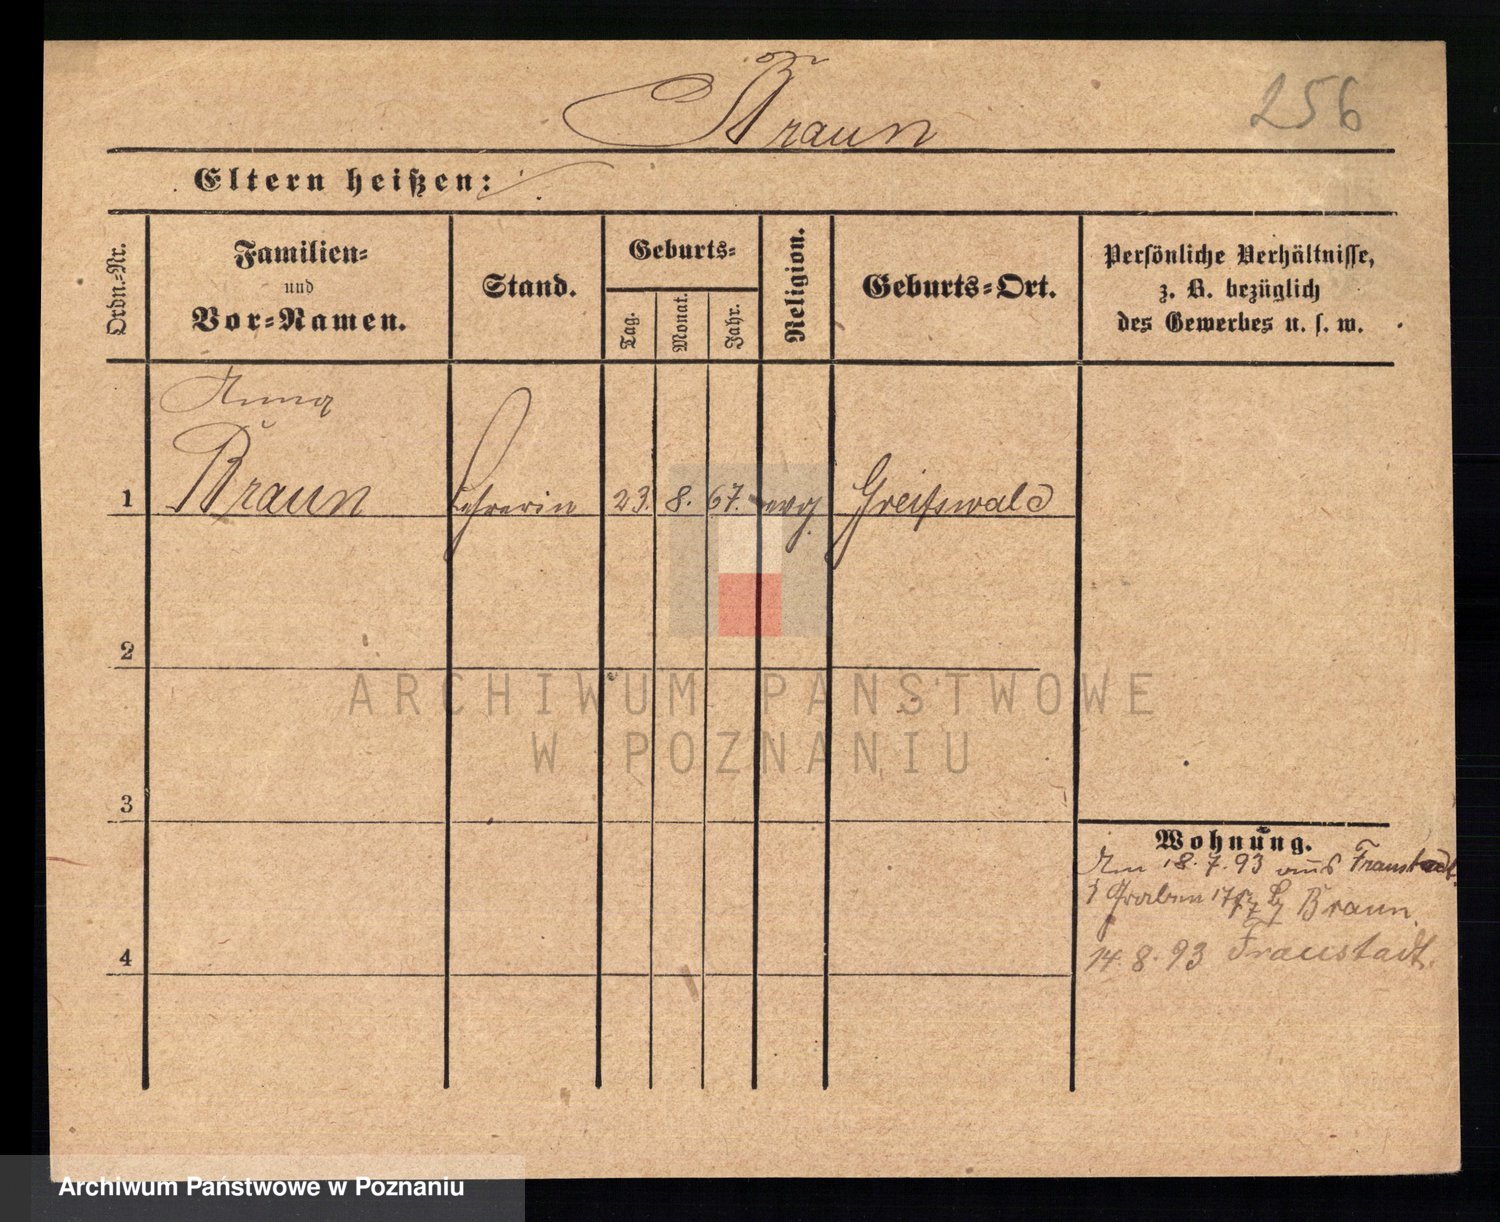 Braun
256
Eltern heißen:
Ordn.-Nr.
Familien-
und
Vor-Namen.
Stand.
Geburts-
Tag.
Monat.
Jahr.
Religion.
Geburts-Ort.
Persönliche Verhältnisse,
z. B. bezüglich
des Gewerbes u. s. w.
Anna
1 Braun Lehrerin 23. 8. 67. evg. Greifswald
2
ARCHIWUM PAŃSTWOWE
W POZNANIU
3
Wohnung.
18.7.93 aus Fraustadt.
Graben Braun.
4
14.8.93 Fraustadt.
Archiwum Państwowe w Poznaniu